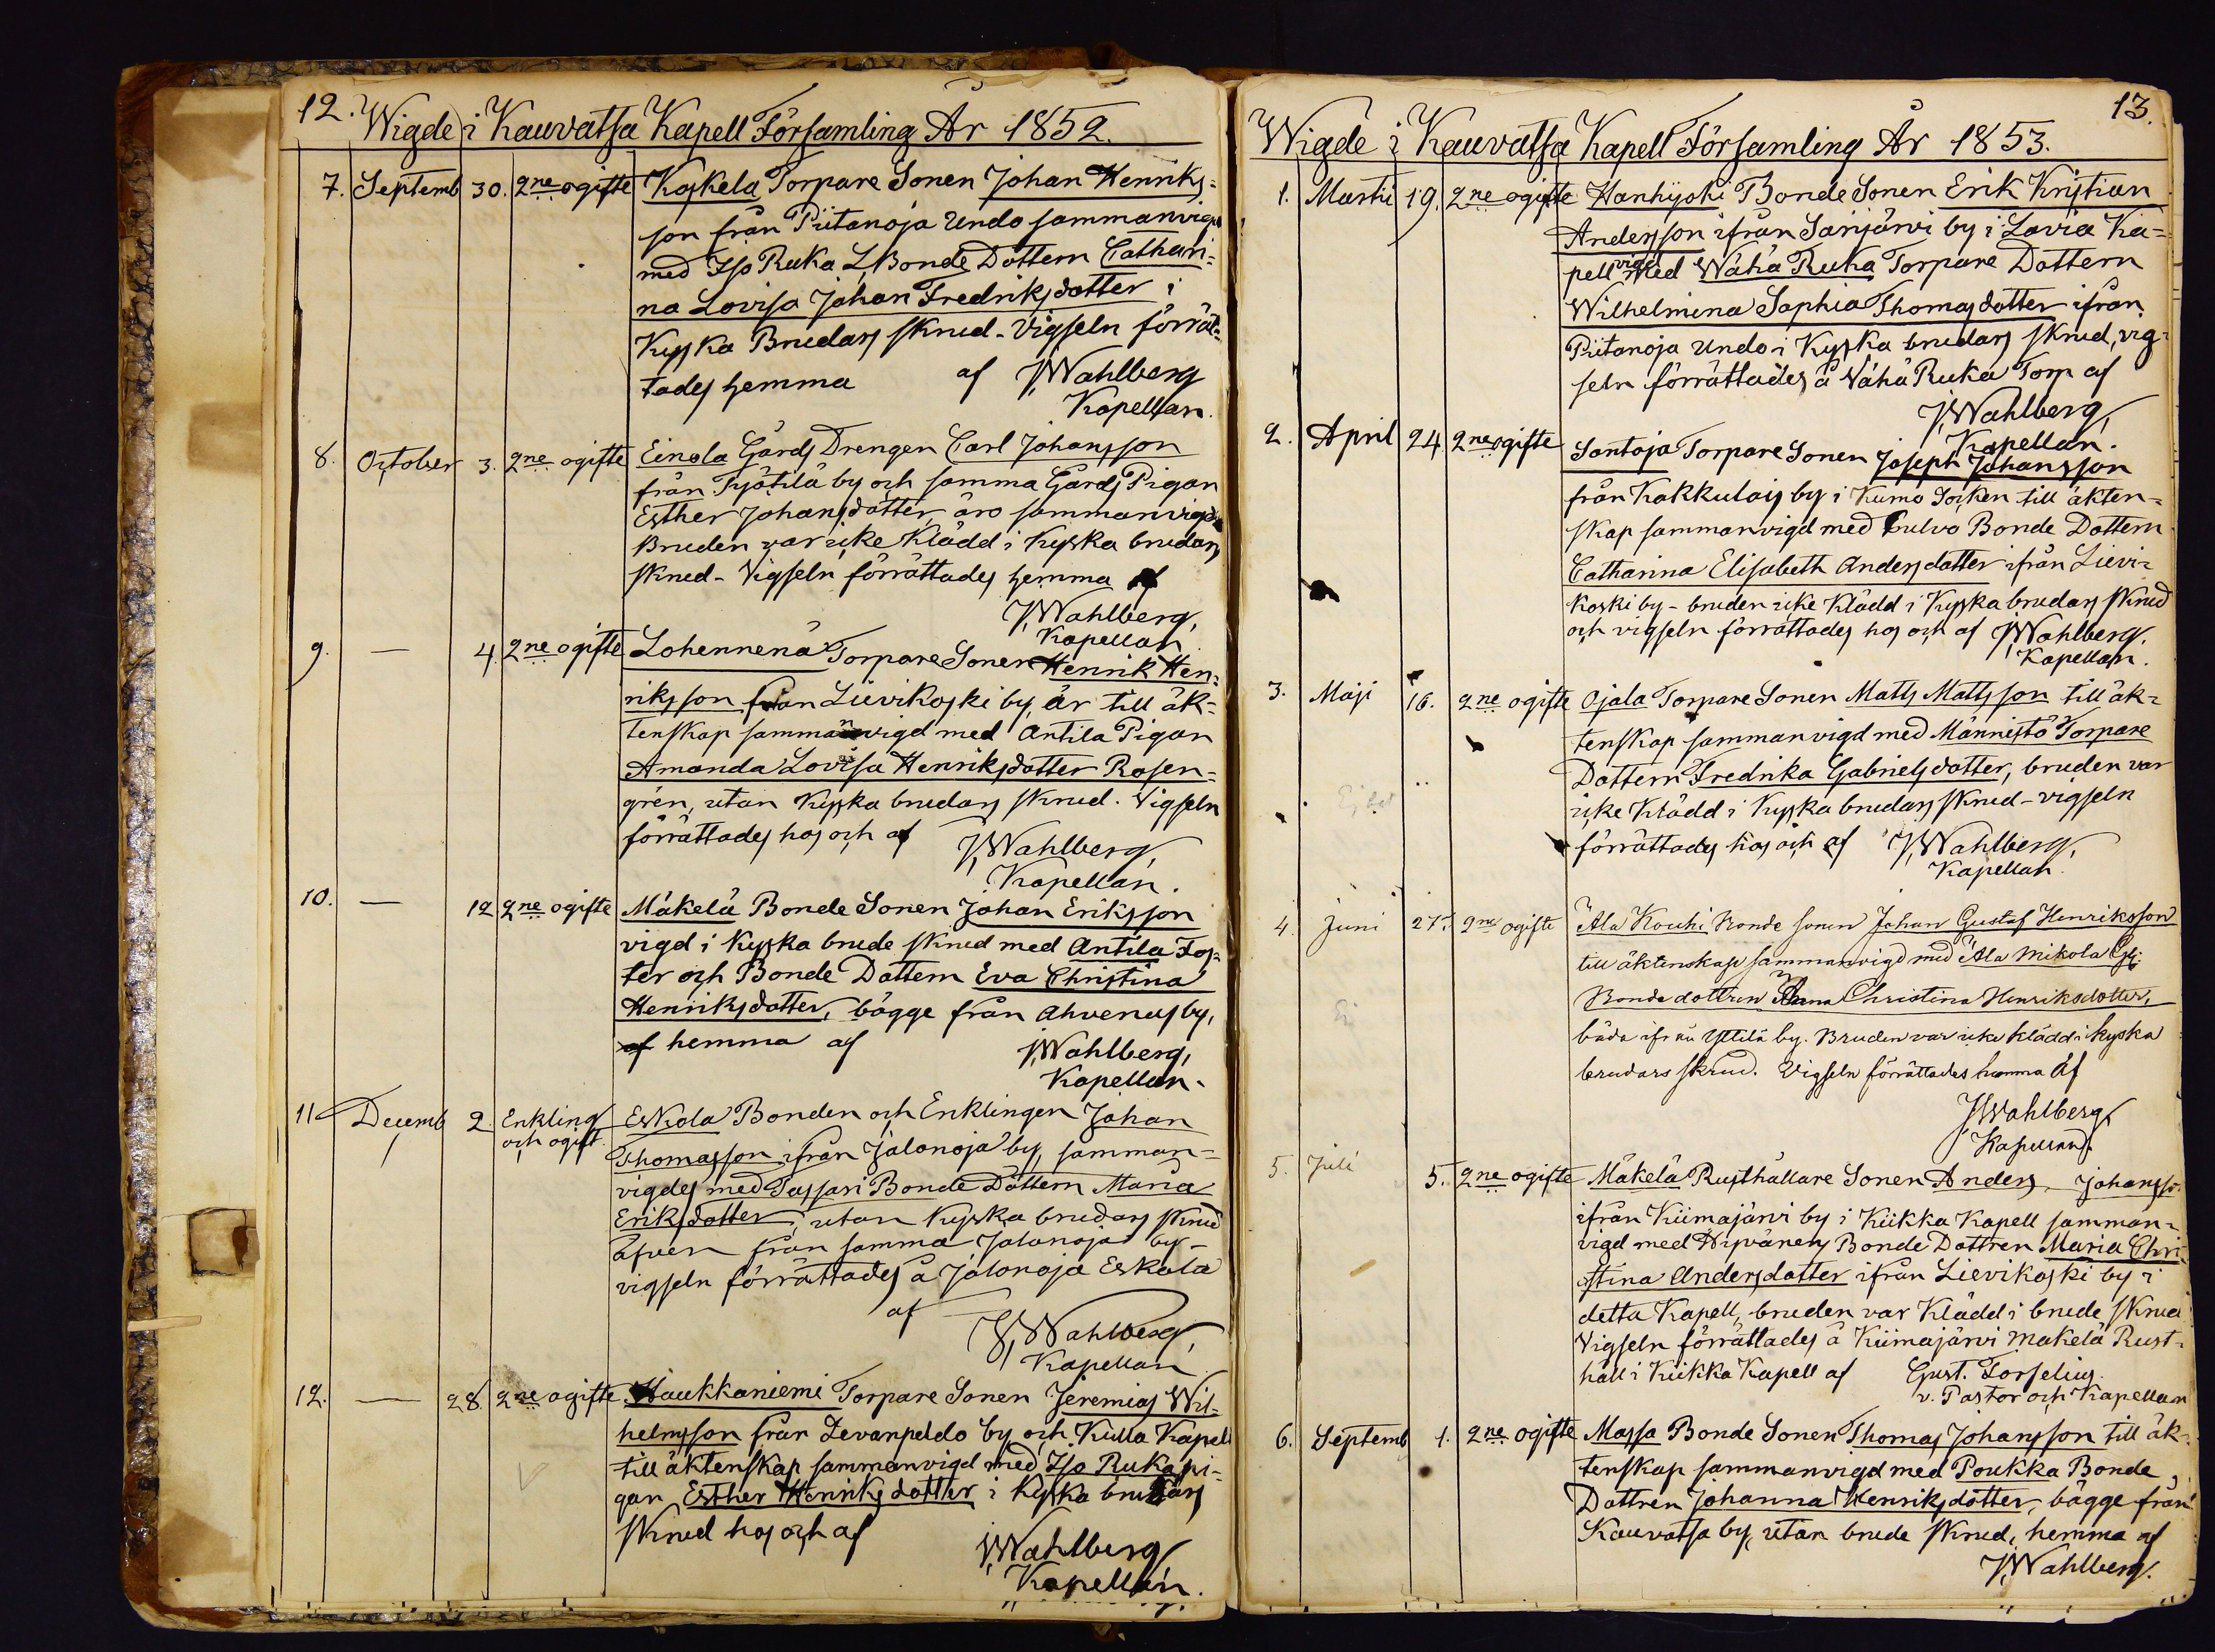 12. Wigde i Kauvatsa Kapell Församling År 1852.
7. Septemb 30. 2ne ogifte Koskela Torpare Sonen Johan Henriks=
son från Piitanoja Undo sammanvigd
med Iso Ruka L. Bonde Dottern Cathari=
na Lovisa Johan Fredriksdotter i
Kyska Brudars skrud - Vigseln förrät=
tades hemma af J. Wahlberg
Kapellan.
8. October 3. 2ne ogifte Einola Gårds Drengen Carl Johansson
från Jyötilä by och samma Gårds Pigan
Esther Johansdotter äro sammanvigde
Bruden var icke Klädd i Kyska brudars
skrud - Vigseln förrättades hemma af
J. Wahlberg,
Kapellan
9. — 4. 2ne ogifte Lohennenä Torpare Sonen Henrik Hen=
riksson från Lievikoski by, är till äk=
tenskap sammanvigd med Antila Pigan
Amanda Lovisa Henriksdotter Rosen=
grén, utan Kyska brudars skrud. Vigseln
förrättades hos och af J. Wahlberg,
Kapellan.
10. — 12 2ne ogifte Mäkelä Bonde Sonen Johan Eriksson
vigd i Kyska brude skrud med Antila Fos=
ter och Bonde Dottern Eva Christina
Henriksdotter, bägge från Ahvenus by,
af hemma af J. Wahlberg,
Kapellan.
11 Decemb 2. Enkling och ogift. Eskola Bonden och Enklingen Johan
Thomasson ifrån Jalonoja by, samman=
vigdes med Tassari Bonde Dottern Maria
Eriksdotter, utan Kyska brudars skrud
äfven från samma Jalonoja by -
vigseln förrättades å Jalonoja Eskola
af
J. Wahlberg
Kapellan
12. — 28. 2ne ogifte Haukkaniemi Torpare Sonen Jeremias Wil=
helmsson från Levanpeldo by och Kulla Kapell
till äktenskap sammanvigd med Iso Ruka pi=
gan Esther Henriksdotter i Kyska brudars
skrud hos och af J. Wahlberg
Kapellan.
13.
Wigde i Kauvatsa Kapell Församling År 1853.
1. Martii 19. 2ne ogifte Hanhijoki Bonde Sonen Erik Kristian
Andersson ifrån Sarijärvi by i Lavia Ka=
pell vigd med Wähä Ruka Torpare Dottern
Wilhelmina Sophia Thomasdotter ifrån
Piitanoja Undo i Kyska brudars skrud, vig=
seln förrättades å Wähä Ruka Torp af
J. Wahlberg,
Kapellan.
2. April 24 2ne ogifte Santoja Torpare Sonen Joseph Johansson
från Kakkulais by i Kumo Socken till äkten=
skap sammanvigd med Hulvo Bonde Dottern
Catharina Elisabeth Andersdotter ifrån Lievi=
koski by - bruden icke Klädd i Kyska brudars skrud
och vigseln förrättades hos och af J. Wahlberg.
Kapellan.
3. Maji 16. 2ne ogifte Ojala Torpare Sonen Matts Mattsson till äk=
tenskap sammanvigd med Männistö Torpare
Dottern Fredrika Gabrielsdotter, bruden var
icke Klädd i Kyska brudars skrud - vigseln
förrättades hos och af J. Wahlberg,
Kapellan.
4. Juni 27. 2ne ogifte Ala Kouhi Bonde sonen Johan Gustaf Henriksson
till äktenskap sammanvigd med Ala Mikola
Bonde dottren Anna Christina Henriksdotter,
båda ifrån Yttilä by. Bruden var icke klädd i kyska
brudars skrud. Vigseln förrättades hemma af
J. Wahlberg
Kapellan.
5. Juli 5. 2ne ogifte Mäkelä Rusthållare Sonen Anders Johansso.
ifrån Kiimajärvi by i Kiikka Kapell samman=
vigd med Hirvänens Bonde Dottren Maria Chri=
stina Andersdotter ifrån Lievikoski by i
detta Kapell, bruden var Klädd i brude skrud
Vigseln förrättades å Kiimajärvi Mäkelä Rust=
håll i Kiikka Kapell af Gust. Forselius.
v. Pastor och Kapellan
6. Septemb 1. 2ne ogifte Massa Bonde Sonen Thomas Johansson till äk=
tenskap sammanvigd med Poukka Bonde
Dottren Johanna Henriksdotter, bägge från
Kauvatsa by, utan brude skrud, hemma af
J. Wahlberg.